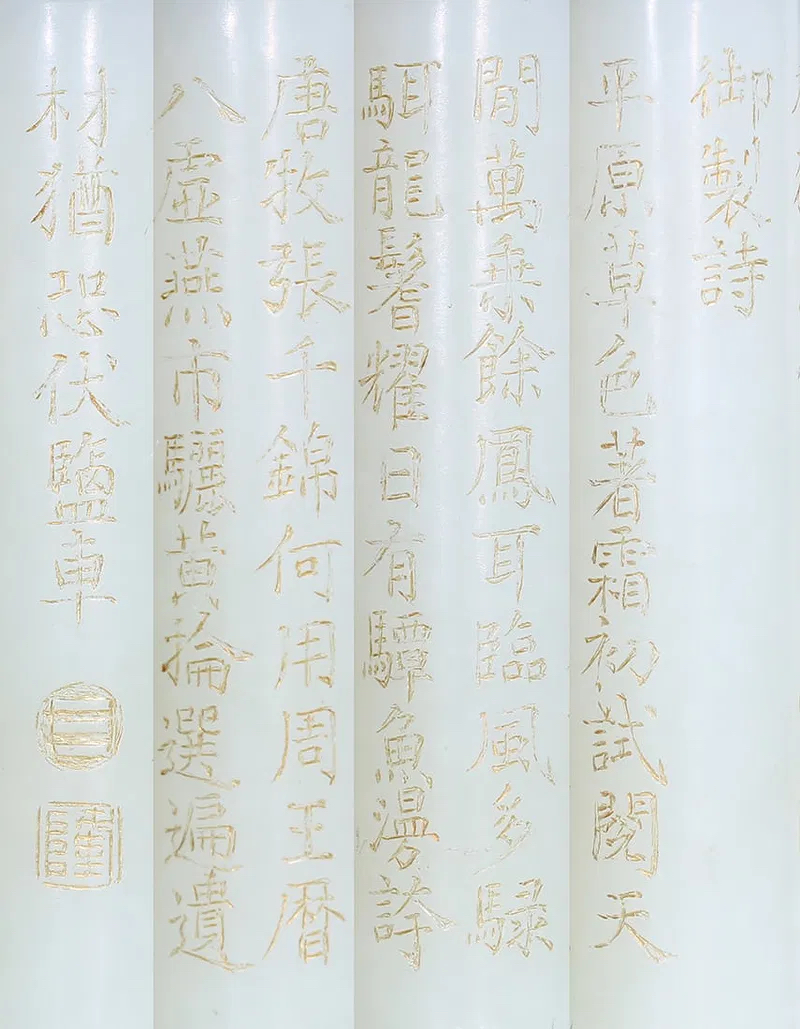 御製詩
平原草色著霜初試閱天
間萬乗餘鳳耳臨風多騄
駬龍鬐耀日有驔魚漫誇
唐牧張千錦何用周王曆
八虛燕市驪黄掄選遍遺
材猶恐伏鹽車